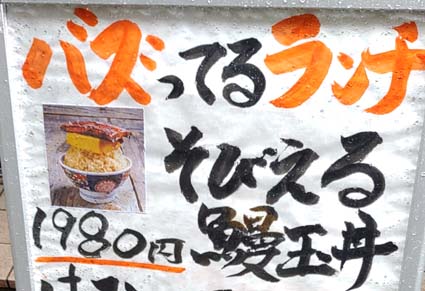 バズってるランチ
そびえる
鰻玉丼
1980円